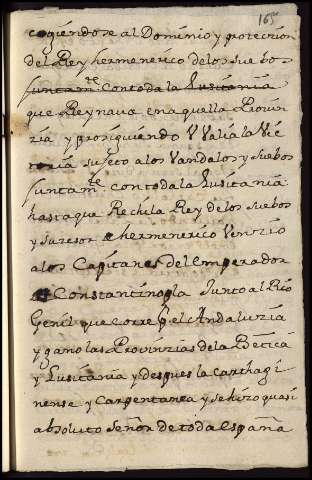 165
cogiendose al Dominio y proteccion
del Rey hermenerico delos Suebos
juntamte Contoda la Lusitania
que Reynava enaquella Provin
zia y prosiguiendo VValia la Vic
toria sujeto alos Vandalos y Suebos
juntamte contoda la Lusitania
hasta que Rechila Rey delos Suebos
y Suzesor e hermenerico Venzio
alos Capitanes del Emperador
Constantinopla Junto al Rio
Genil que corre pr el Andaluzia
y gano las Provinzias dela Betica
y Lusitania y despues la carthagi
nense y Carpentanea y sehizo quasi
absoluto Señor de toda España